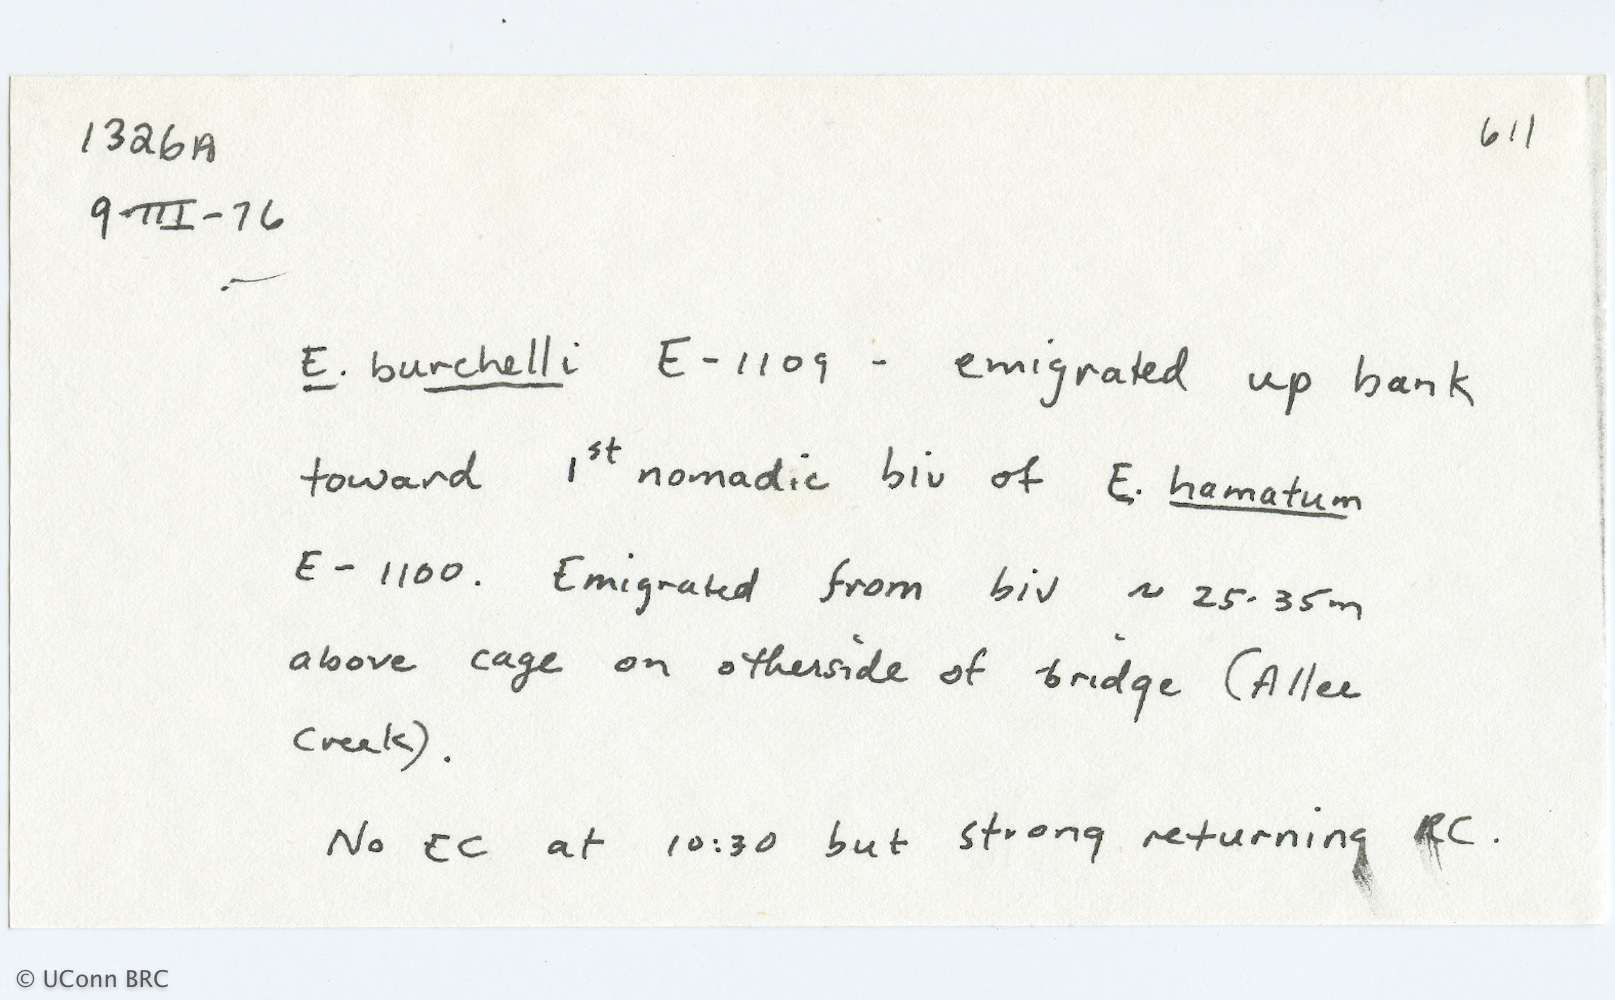 1326A
611
9-III-76
E. burchelli E-1109 - emigrated up bank
toward 1st nomadic biv of E. hamatum
E-1100. Emigrated from biv ~ 25-35m
above cage on otherside of bridge (Allee
Creek).
No EC at 10:30 but strong returning RC.
© UConn BRC